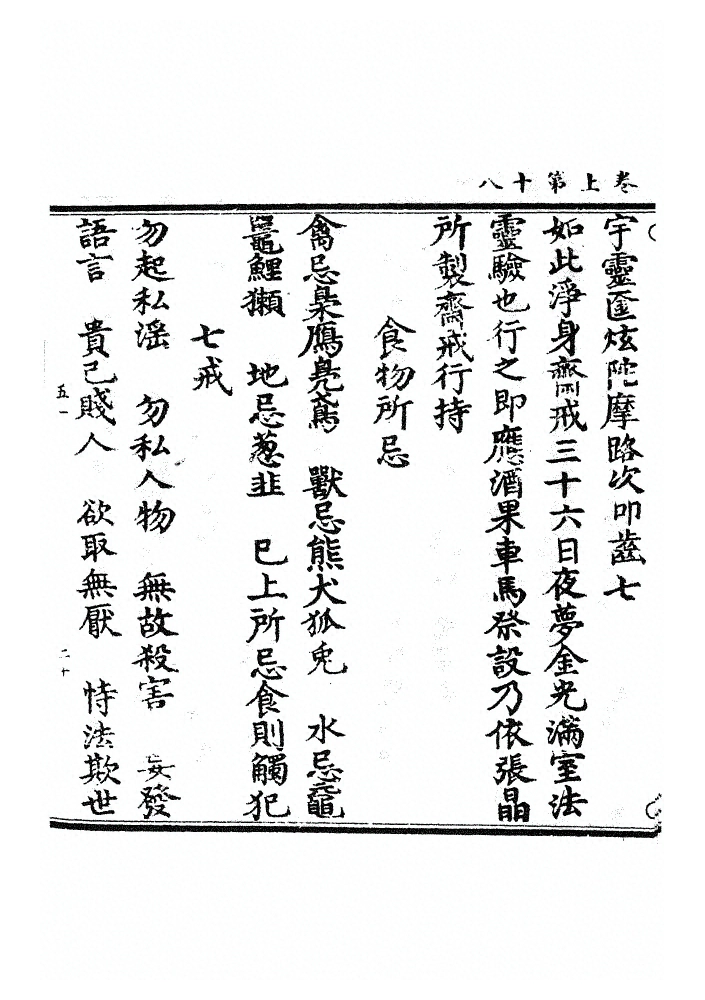 卷上第十八
宇靈匯炫陀摩路次叩齒七
如此淨身齋戒三十六日夜夢金光滿室法
靈驗也行之即應酒果車馬祭設乃依張晶
所製齋戒行持
食物所忌
禽忌梟鴈鳧鳶　獸忌熊犬狐兎　水忌黿
鼉鯉獺　地忌葱韭　巳上所忌食則觸犯
七戒
勿起私滛　勿私人物　無故殺害　妄發
語言　貴己賤人　欲取無厭　恃法欺世
五一
二十